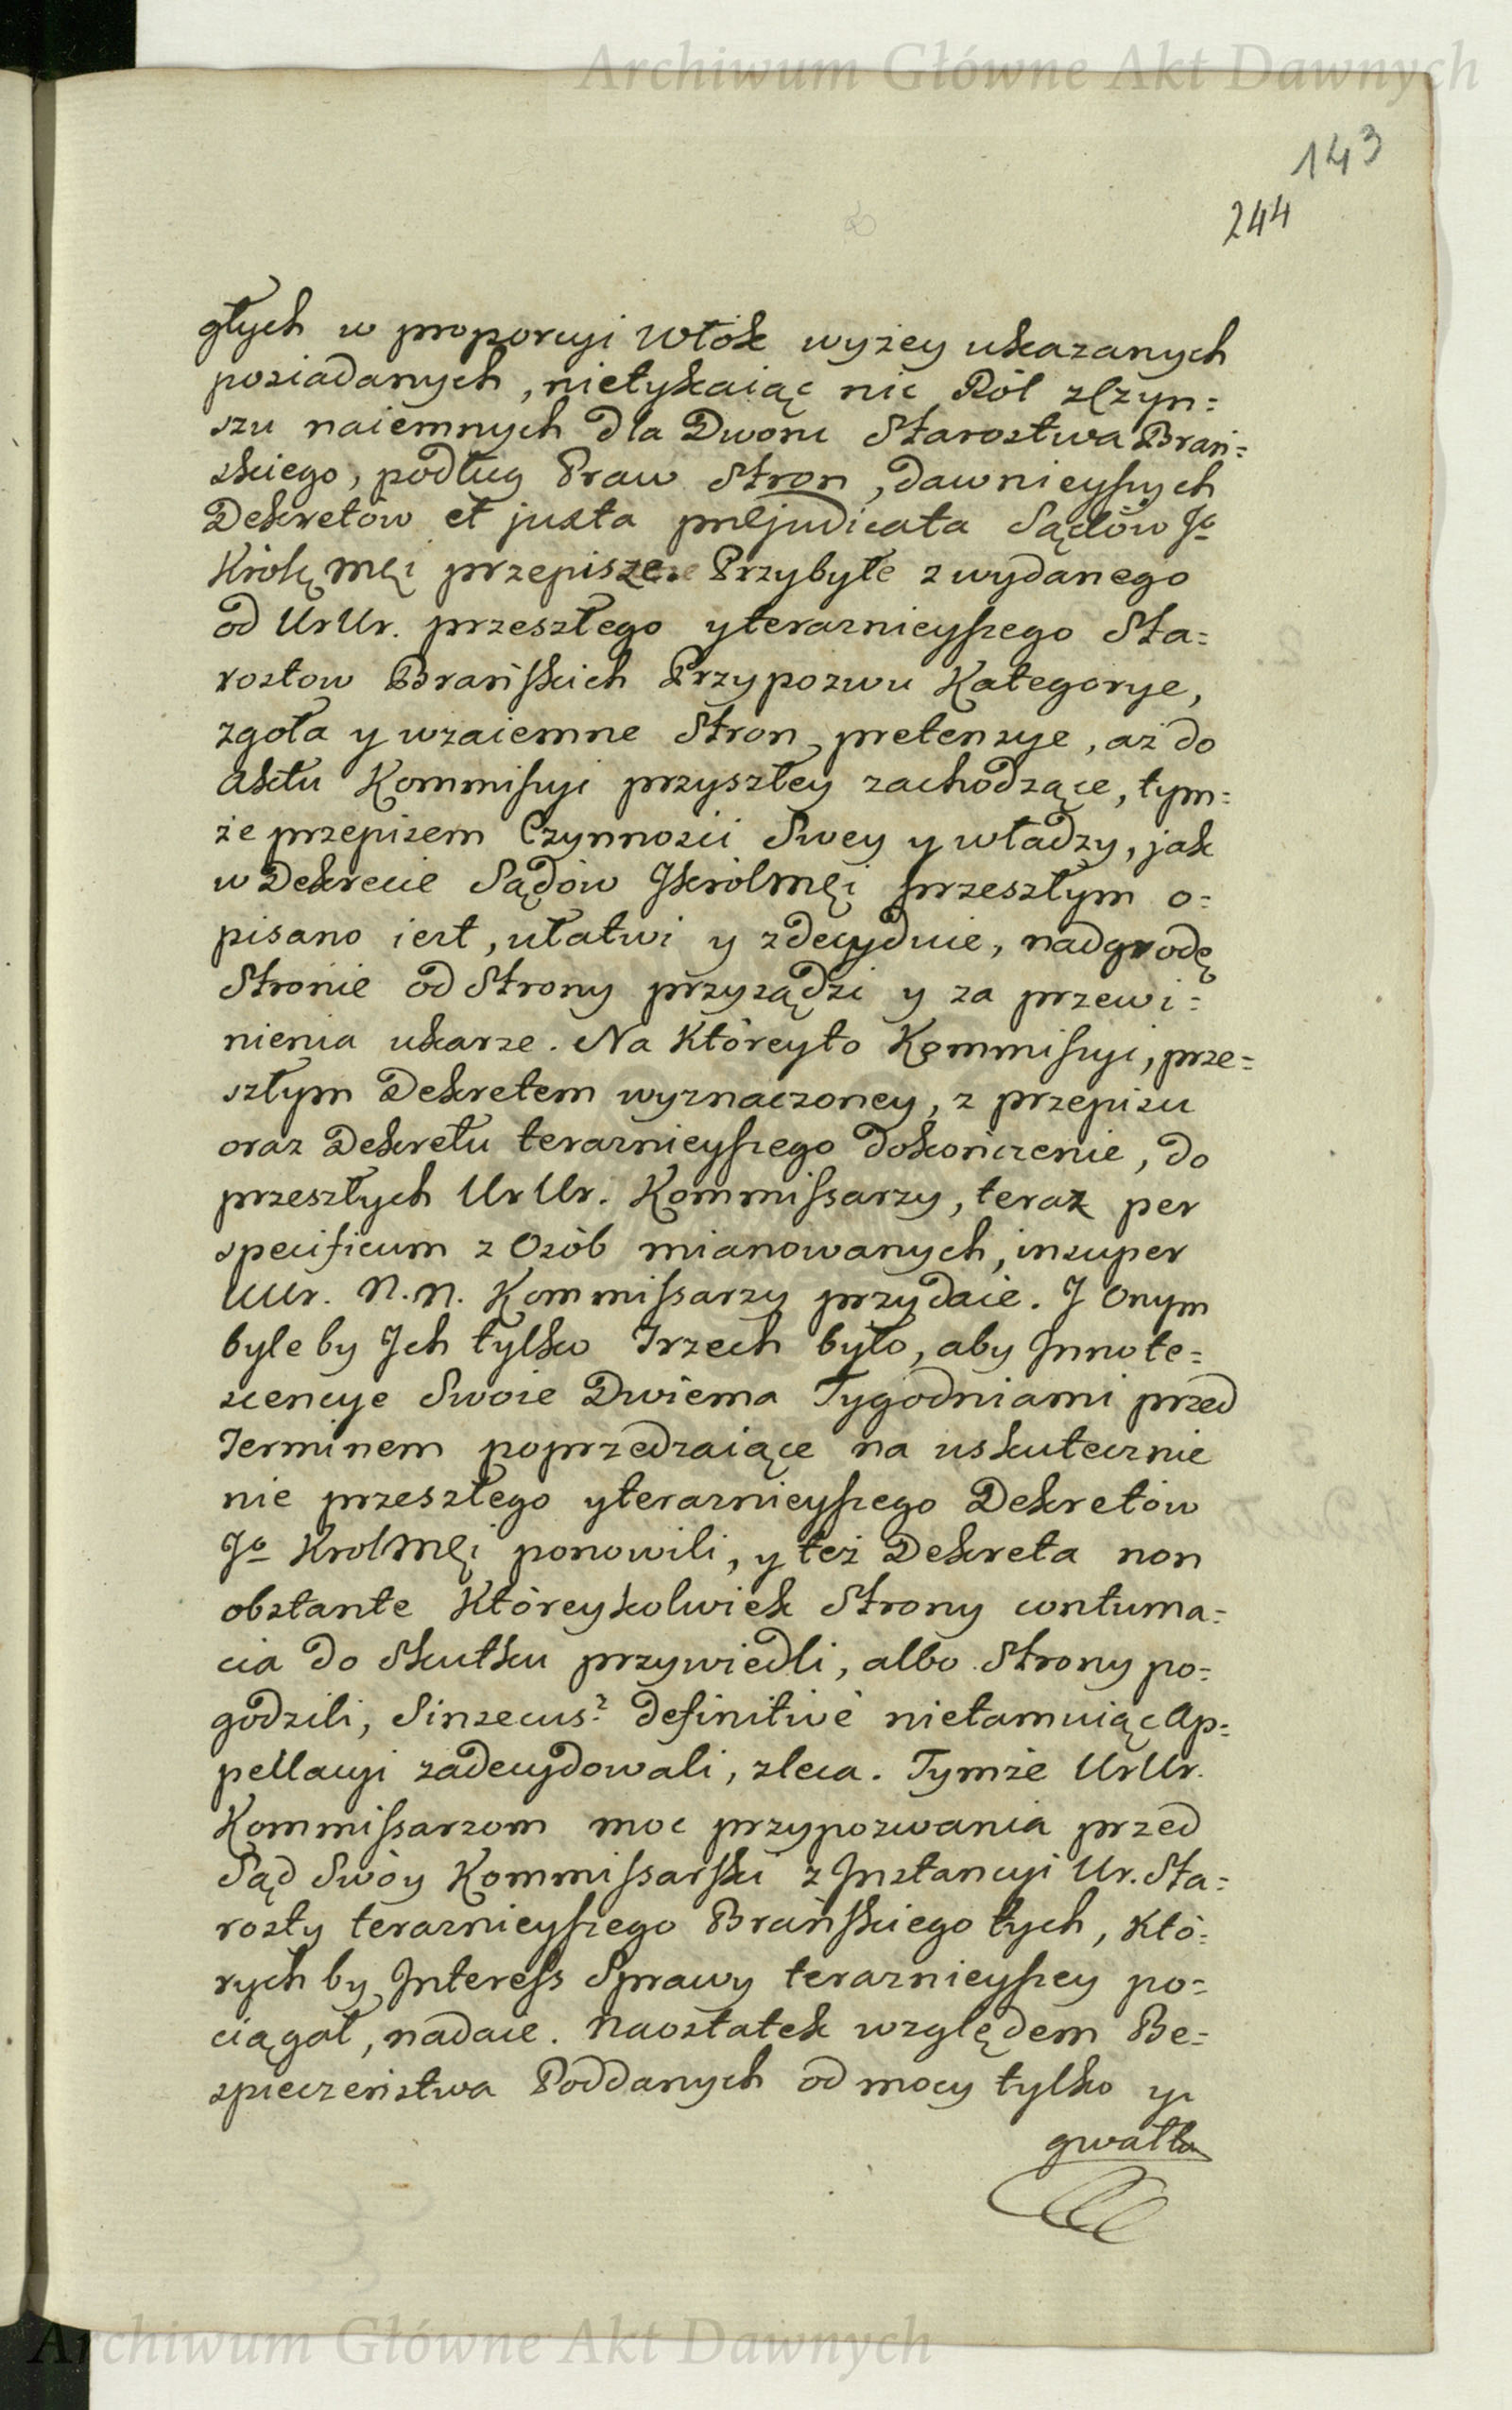 Archiwum Główne Akt Dawnych
143
244
głych w proporcyi Włók wyżey ukazanych
posiadanych, nietykaiąc nic Ról zCzyn=
szu naiemnych dla Dworu Starostwa Brań=
skiego, podług Praw Stron, dawnieyszych
Dekretów et juxta præjudicata Sądów Jo
Królę Mći przepisze. Przybyłe z wydanego
od UrUr. przeszłego y teraznieyszego Sta=
rostow Brańskich Przypozwu Kategorye,
zgoła y wzaiemne Stron pretensye, aż do
Aktu Kommissyi przyszłey zachodzące, tym=
że przepisem Czynności Swey y władzy, jak
w Dekrecie Sądów JKrólMći przeszłym o=
pisano iest, ułatwi y zdecyduie, nadgrodę
Stronie od Strony przysądzi y za przewi=
nienia ukarze. Na Któreyto Kommissyi, prze=
szłym Dekretem wyznaczoney, z przepisu
oraz Dekretu teraznieyszego dokończenie, do
przeszłych UrUr. Kommissarzy, teraz per
specificum z Osób mianowanych, insuper
UUr. N.N. Kommissarzy przydaie. J Onym
byle by Jch tylko Trzech było, aby Jnnote=
scencye Swoie Dwiema Tygodniami przed
Terminem poprzedzaiące na uskutecznie
nie przeszłego y teraznieyszego Dekretów
Jo KrolMći ponowili, y też Dekreta non
obstante Któreykolwiek Strony contuma=
cia do Skutku przywiedli, albo Strony po=
godzili, Sinsecus? definitivè nietamuiąc Ap=
pellacyi zadecydowali, zleca. Tymże UrUr.
Kommissarzom moc przypozwania przed
Sąd Swóy Kommissarski z Jnstancyi Ur. Sta=
rosty teraznieyszego Brańskiego tych, Któ=
rych by Jnteress Sprawy teraznieyszey po=
ciągał, nadaie. Naostatek względem Be=
spieczeństwa Poddanych od mocy tylko y
gwałtu
Archiwum Główne Akt Dawnych